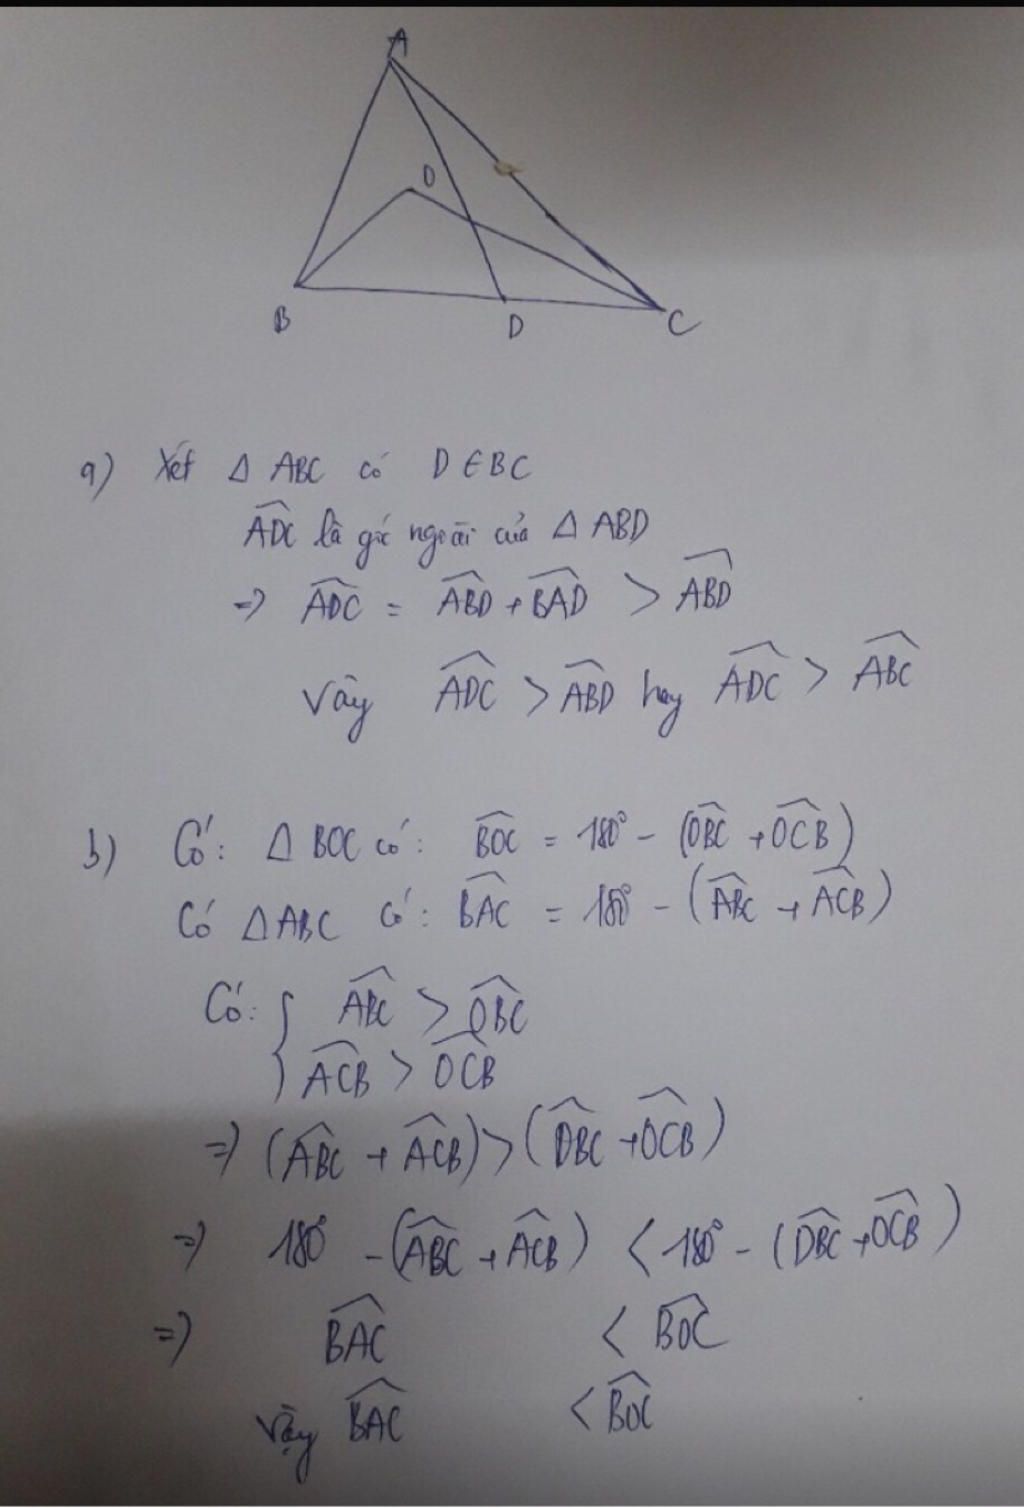 A
O
B
D
C
a) Xét Δ ABC có D ∈ BC
\widehat{ADC} là góc ngoài của Δ ABD
=> \widehat{ADC} = \widehat{ABD} + \widehat{BAD} > \widehat{ABD}
Vậy \widehat{ADC} > \widehat{ABD} hay \widehat{ADC} > \widehat{ABC}
b) Có: Δ BOC có: \widehat{BOC} = 180° - (\widehat{OBC} + \widehat{OCB})
Có Δ ABC có: \widehat{BAC} = 180° - (\widehat{ABC} + \widehat{ACB})
Có: { \widehat{ABC} > \widehat{OBC}
\widehat{ACB} > \widehat{OCB}
=> (\widehat{ABC} + \widehat{ACB}) > (\widehat{OBC} + \widehat{OCB})
=> 180° - (\widehat{ABC} + \widehat{ACB}) < 180° - (\widehat{OBC} + \widehat{OCB})
=> \widehat{BAC} < \widehat{BOC}
Vậy \widehat{BAC} < \widehat{BOC}